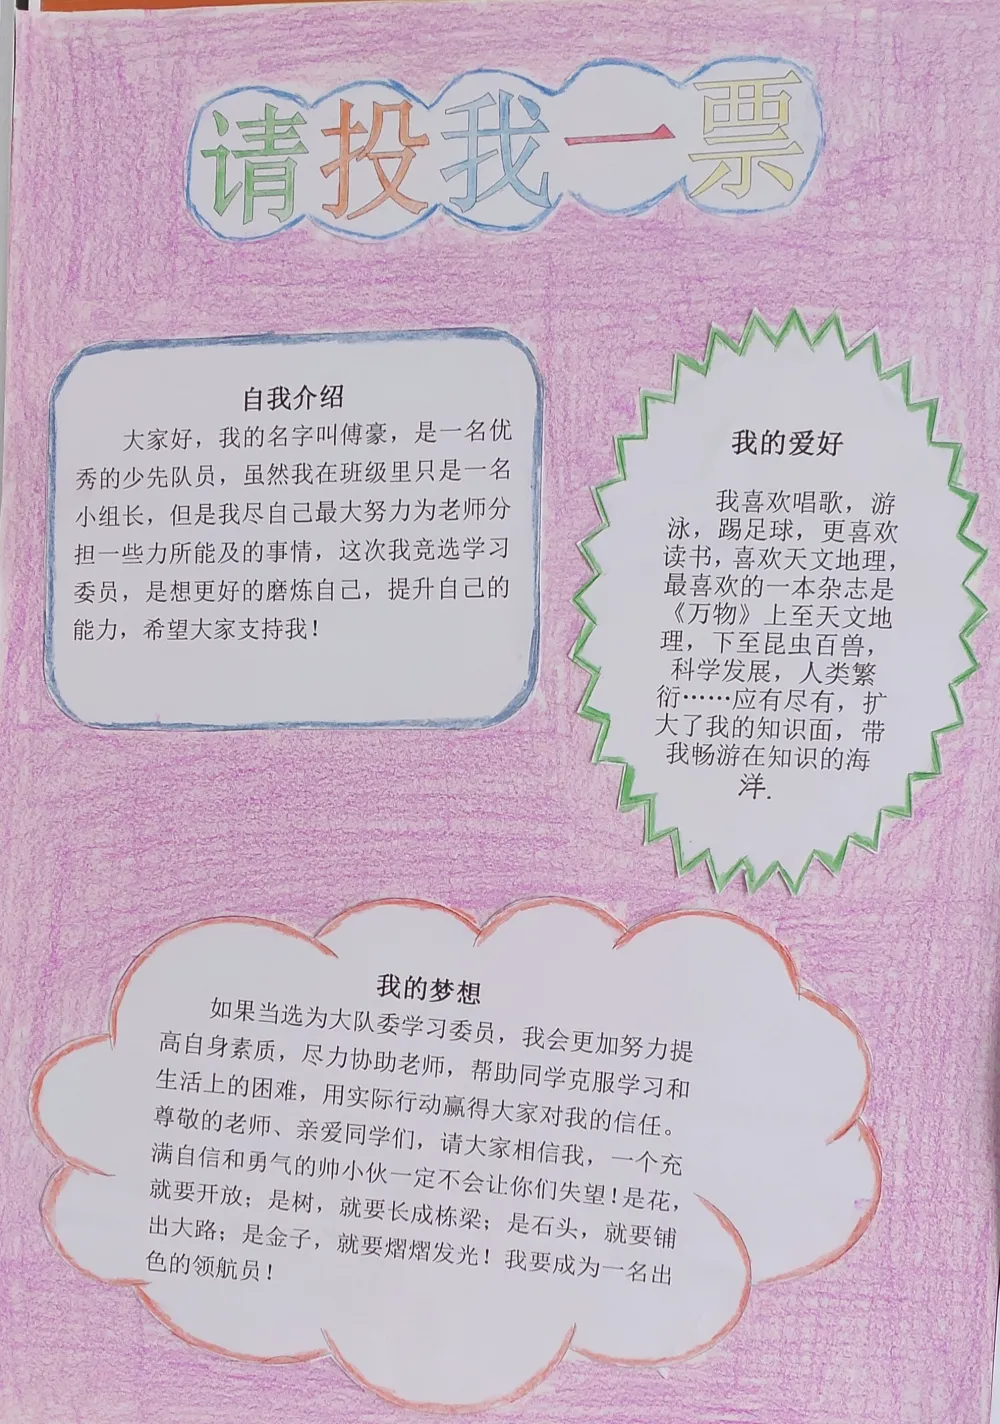 请投我一票
自我介绍
大家好，我的名字叫傅豪，是一名优
秀的少先队员，虽然我在班级里只是一名
小组长，但是我尽自己最大努力为老师分
担一些力所能及的事情，这次我竞选学习
委员，是想更好的磨炼自己，提升自己的
能力，希望大家支持我！
我的爱好
我喜欢唱歌，游
泳，踢足球，更喜欢
读书，喜欢天文地理，
最喜欢的一本杂志是
《万物》上至天文地
理，下至昆虫百兽，
科学发展，人类繁
衍……应有尽有，扩
大了我的知识面，带
我畅游在知识的海
洋.
我的梦想
如果当选为大队委学习委员，我会更加努力提
高自身素质，尽力协助老师，帮助同学克服学习和
生活上的困难，用实际行动赢得大家对我的信任。
尊敬的老师、亲爱同学们，请大家相信我，一个充
满自信和勇气的帅小伙一定不会让你们失望！是花，
就要开放；是树，就要长成栋梁；是石头，就要铺
出大路；是金子，就要熠熠发光！我要成为一名出
色的领航员！